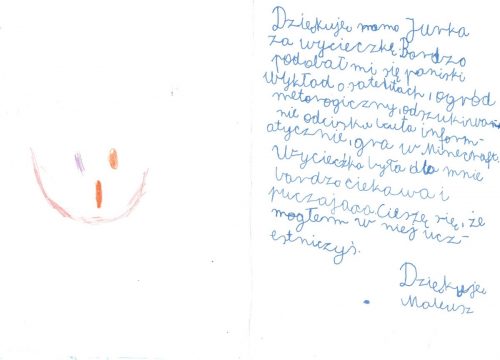 Dziękuję mamo Jurka
za wycieczkę. Bardzo
podobał mi się paniski
wykład o satelitach, ogród
metorogiczny, odszukiwa-
nie odcisku buta inform-
atycznie, gra w Minecrafta.
Wycieczka była dla mnie
bardzo ciekawa i
puczająca. Cieszę się, że
mogłem w niej ucz-
estniczyś.
Dziękuję
Mateusz